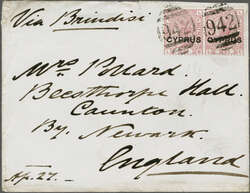 Via Brindisi
CYPRUS CYPRUS
942 942
Mrs Pollard.
Beesthorpe Hall.
Caunton.
By. Newark.
England
Ap. 27.